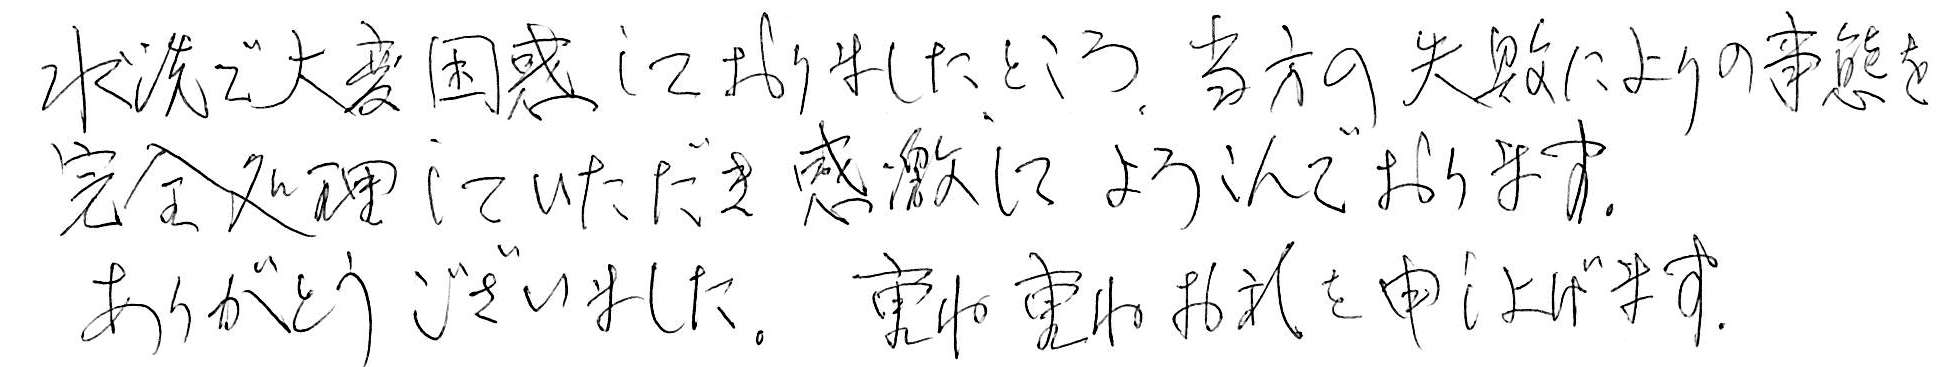 水洗で大変困惑しておりましたところ、当方の失敗によりの事態を
完全処理していただき感激してようこんでおります。
ありがとうございました。 重ね重ねお礼を申し上げます。